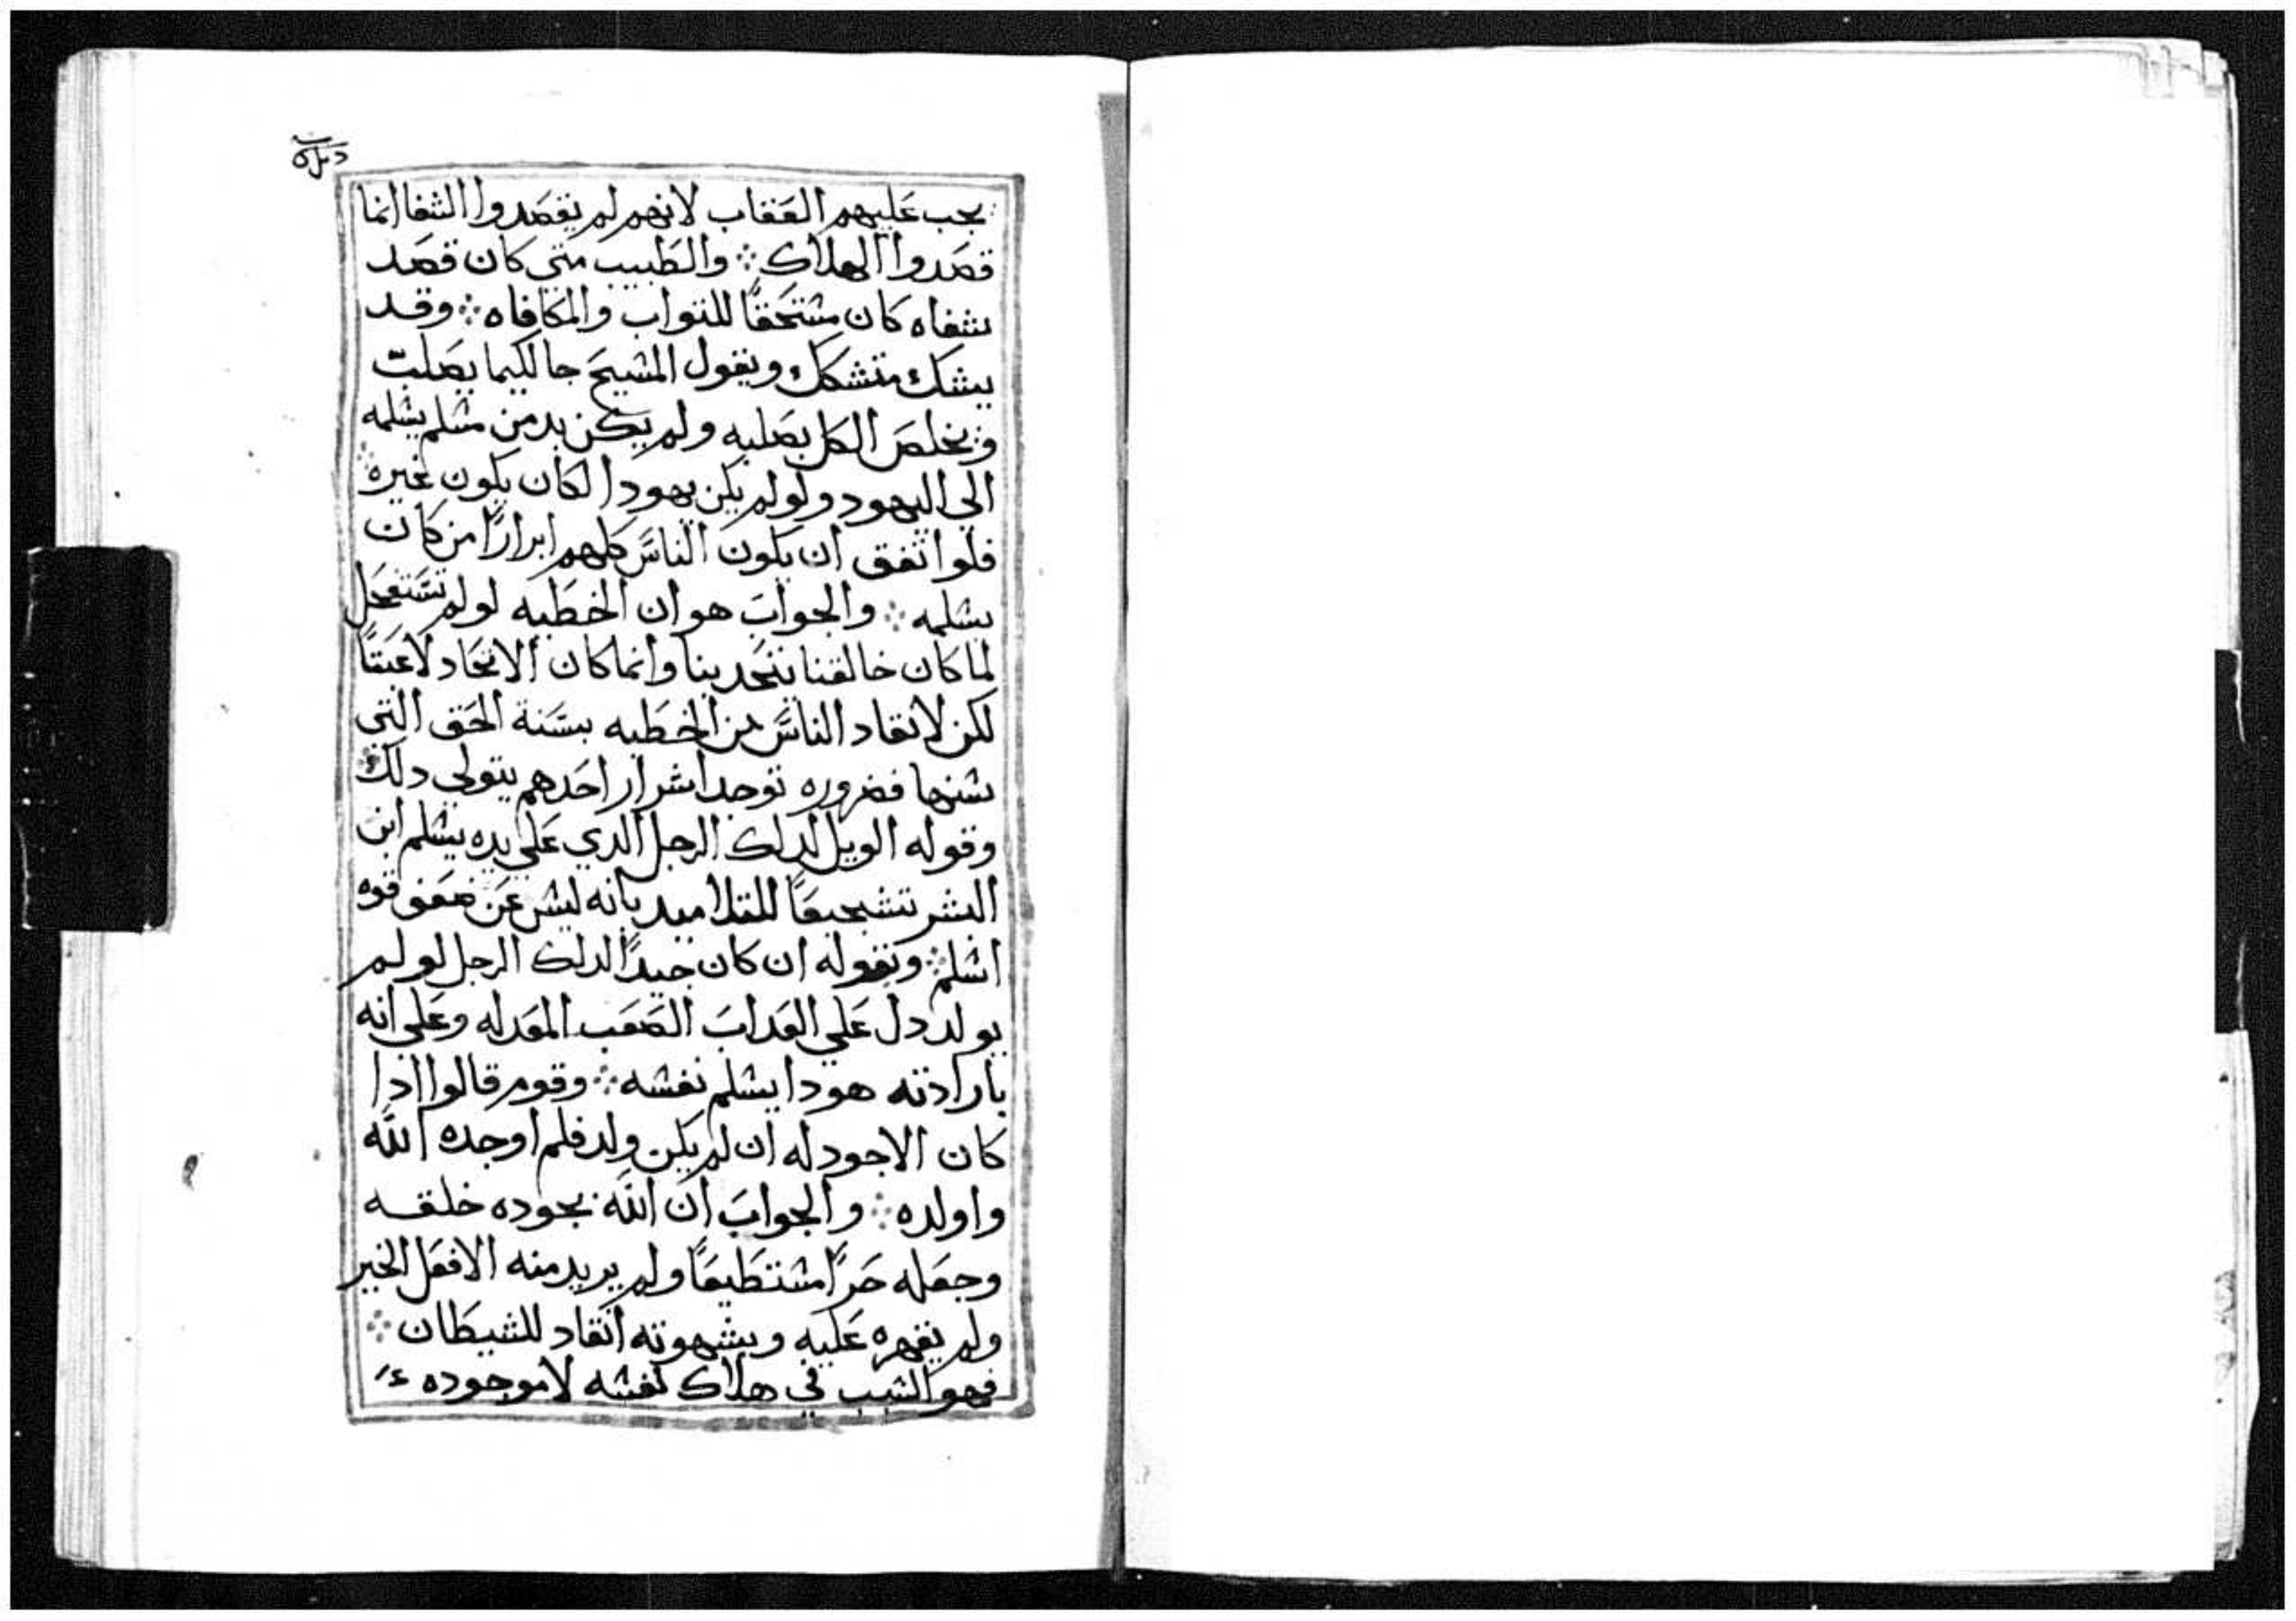 يجب عليهم العقاب لانهم لم يقصدوا الشفا انما
قصدوا الهلاك ⁘ والطبيب متي كان قصد
شفاه كان مشتحقًا للثواب والمكافاه ⁘ وقد
يشك متشكك ويقول المشيح جا لكيما يصلب
ويخلص الكل بصلبه ولم يكن بد من مشلم يشلمه
الي اليهود ولو لم يكن يهودا لكان يكون غيره ⁘
فلو اتفق ان يكون الناس كلهم ابرارًا من كان
يشلمه ⁘ والجواب هو ان الخطيه لو لم تستفحل
لما كان خالقنا يتحد بنا وانما كان الاتحاد لا عبثًا
لكن لانقاد الناس من الخطيه بسنة الحق التي
شنها فضروره توجد اشرار احدهم يتولي دلك ⁘
وقوله الويل لدلك الرجل الدي علي يده يشلم ابن
البشر تشجيعًا للتلاميد بانه ليش عن ضعف قوه
اشلم ⁘ وبقوله ان كان جيدًا لدلك الرجل لو لم
يولد دل علي العداب الصعب المعد له وعلي انه
بارادته هودا يشلم نفشه ⁘ وقوم قالوا ادا
كان الاجود له ان لم يكن ولد فلم اوجده الله
واولده ⁘ والجواب ان الله بجوده خلقه
وجعله حرًا مشتطيعًا ولم يريد منه الا فعل الخير
ولم يقهره عليه وبشهوته انقاد للشيطان ⁘
فهو الشبب في هلاك نفشه لا موجوده